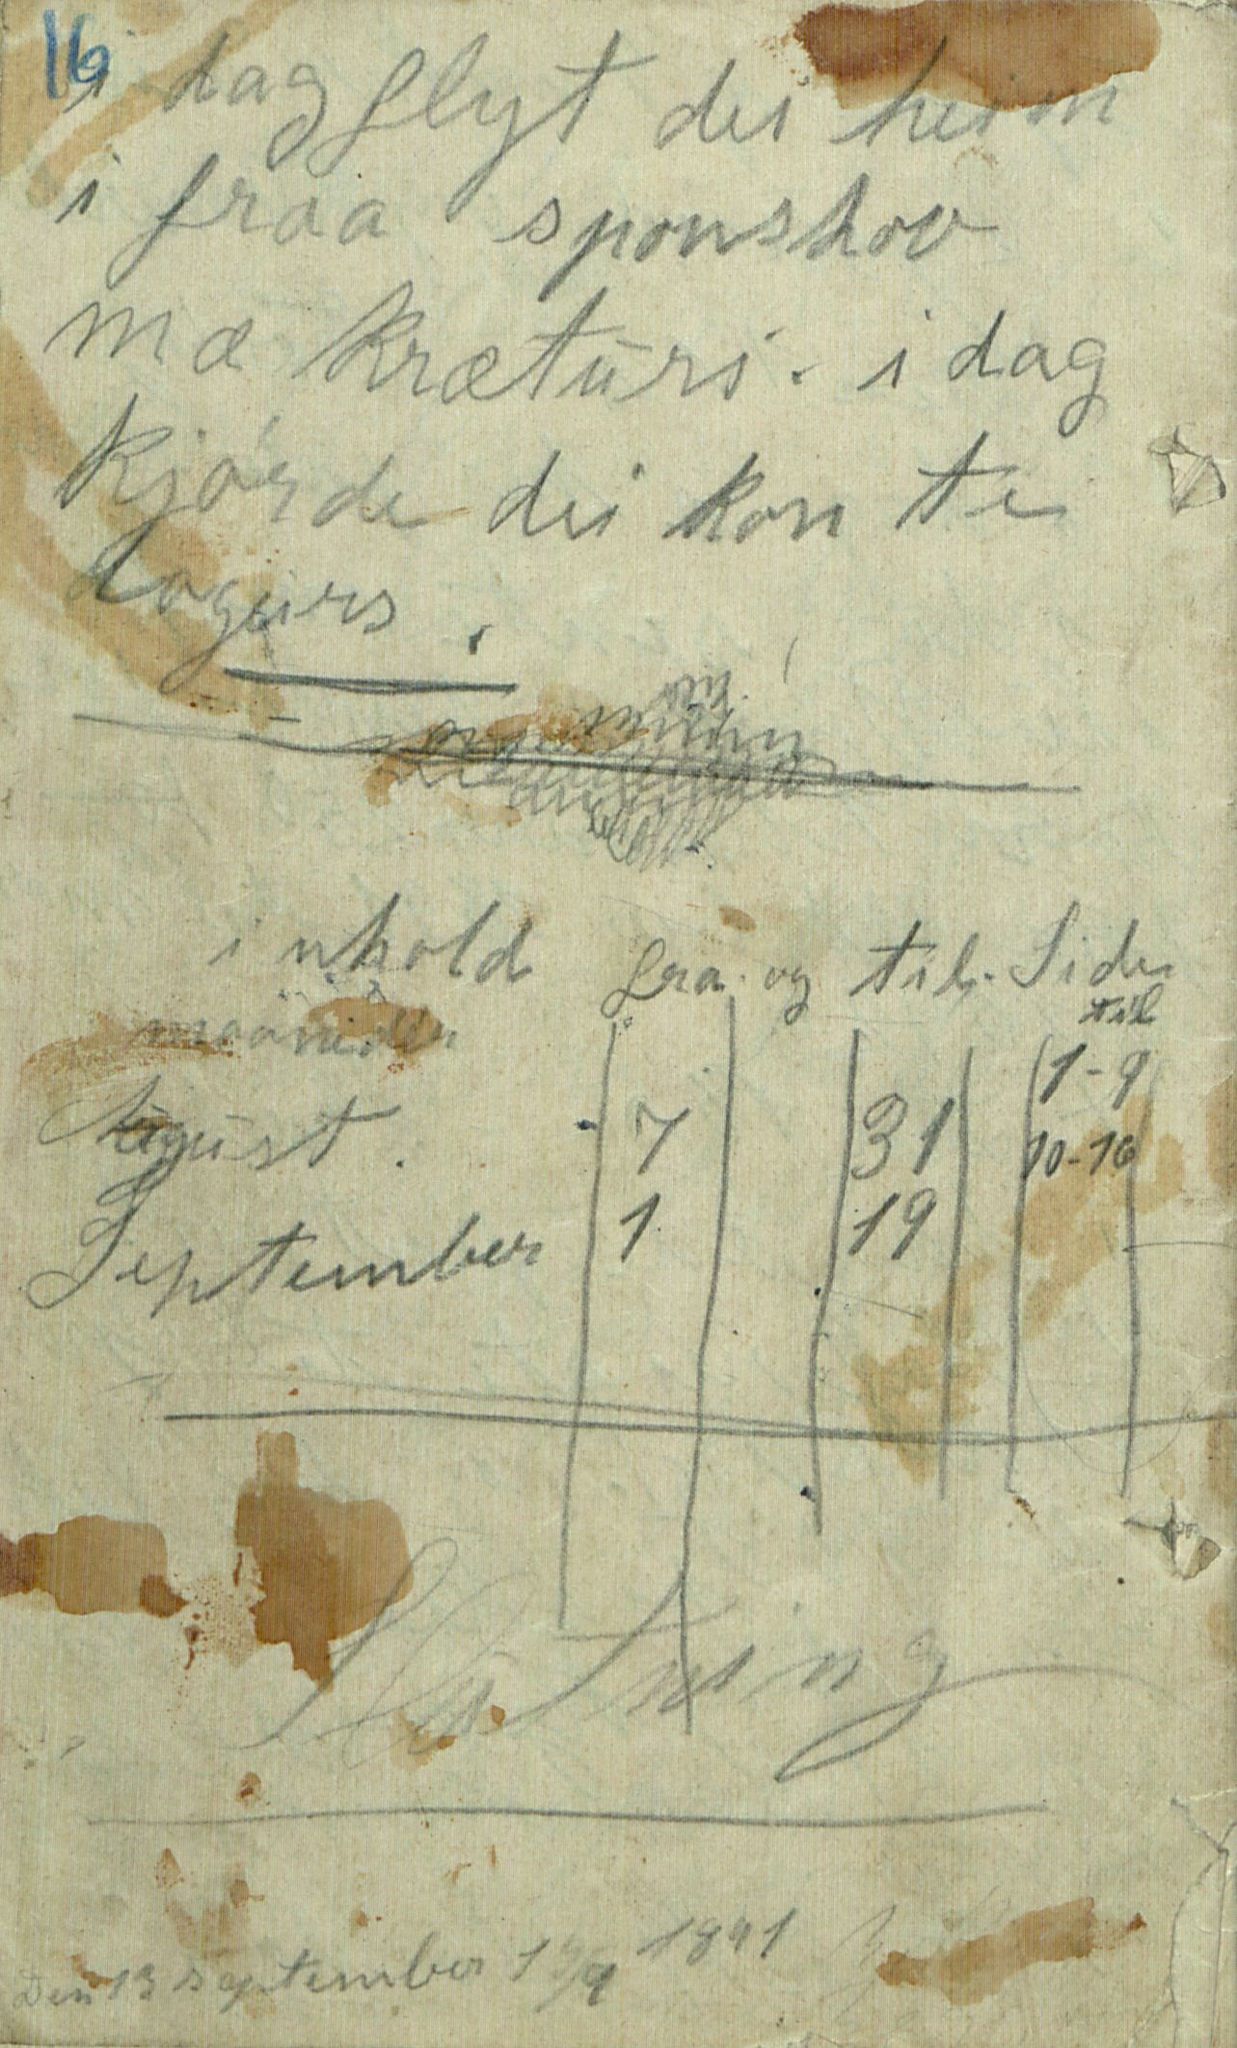 16
i dag flyt dei heim
i fraa sponshov
mæ krætūrs. i dag
kjórde dei kon te
dogūrs.
inhold fra og til. Sider
maaneder til
1-9
August. 7 31 10-16
September 1 19
Slutning
Den 13 september 1891